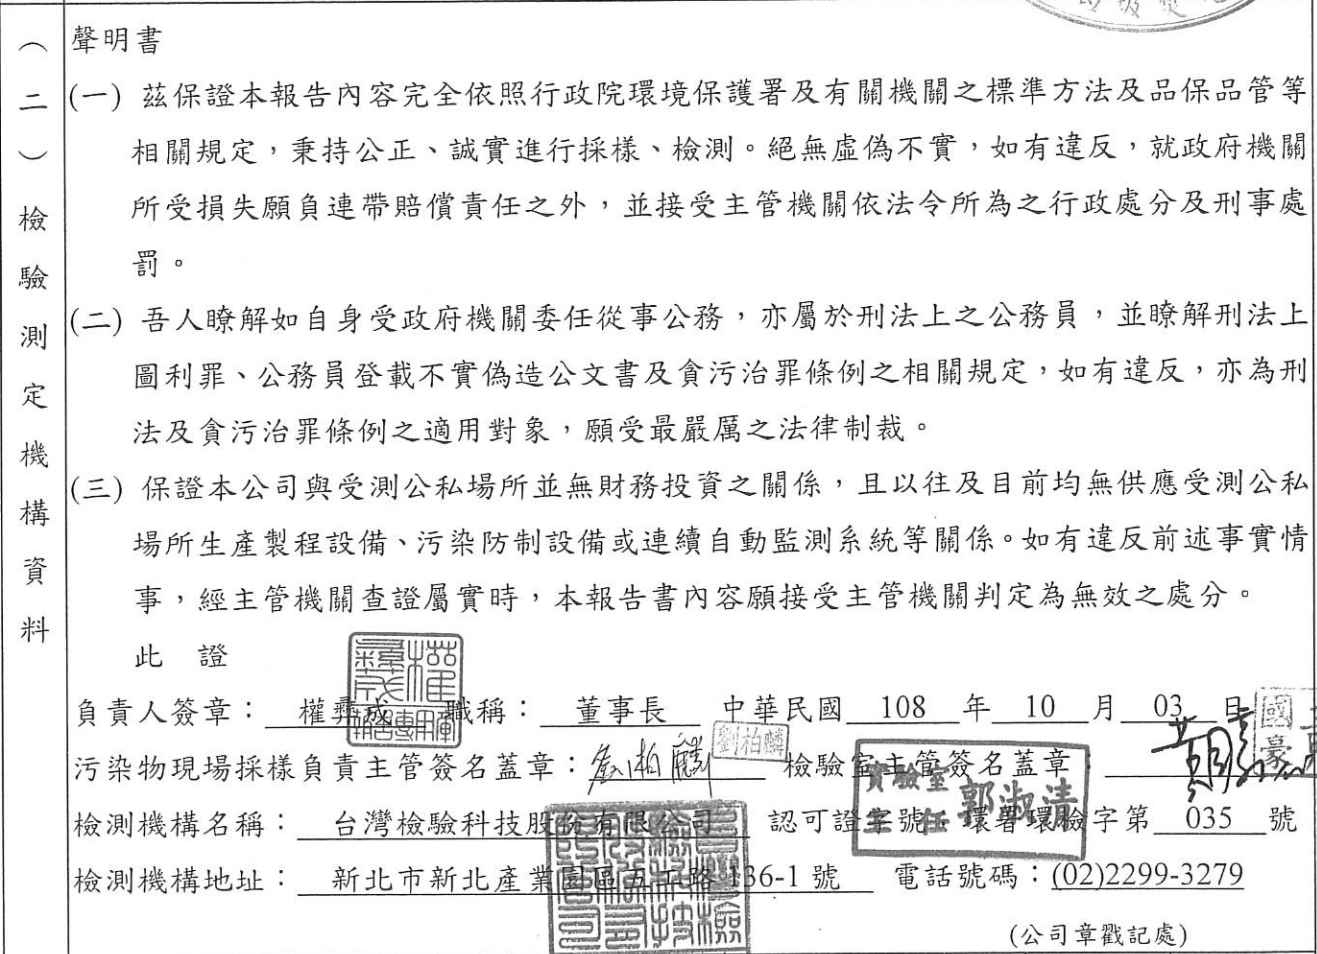 （二）檢驗測定機構資料
聲明書
(一) 茲保證本報告內容完全依照行政院環境保護署及有關機關之標準方法及品保品管等
相關規定，秉持公正、誠實進行採樣、檢測。絕無虛偽不實，如有違反，就政府機關
所受損失願負連帶賠償責任之外，並接受主管機關依法令所為之行政處分及刑事處
罰。
(二) 吾人瞭解如自身受政府機關委任從事公務，亦屬於刑法上之公務員，並瞭解刑法上
圖利罪、公務員登載不實偽造公文書及貪污治罪條例之相關規定，如有違反，亦為刑
法及貪污治罪條例之適用對象，願受最嚴厲之法律制裁。
(三) 保證本公司與受測公私場所並無財務投資之關係，且以往及目前均無供應受測公私
場所生產製程設備、污染防制設備或連續自動監測系統等關係。如有違反前述事實情
事，經主管機關查證屬實時，本報告書內容願接受主管機關判定為無效之處分。
此 證
負責人簽章： 權彝成 職稱： 董事長 中華民國 108 年 10 月 03 日
污染物現場採樣負責主管簽名蓋章： 劉柏麟 劉柏麟 檢驗室主管簽名蓋章：
實驗室主任 郭淑清
檢測機構名稱： 台灣檢驗科技股份有限公司 認可證字號：環署環檢字第 035 號
檢測機構地址： 新北市新北產業園區五工路 136-1 號 電話號碼：(02)2299-3279
(公司章戳記處)